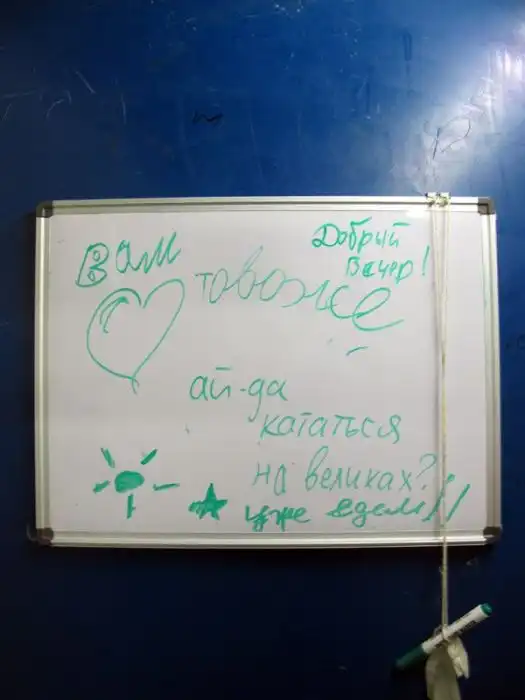 Добрый
Вечер!
Вам
товоже
ай-да
кататься
на великах?
уже едем!!